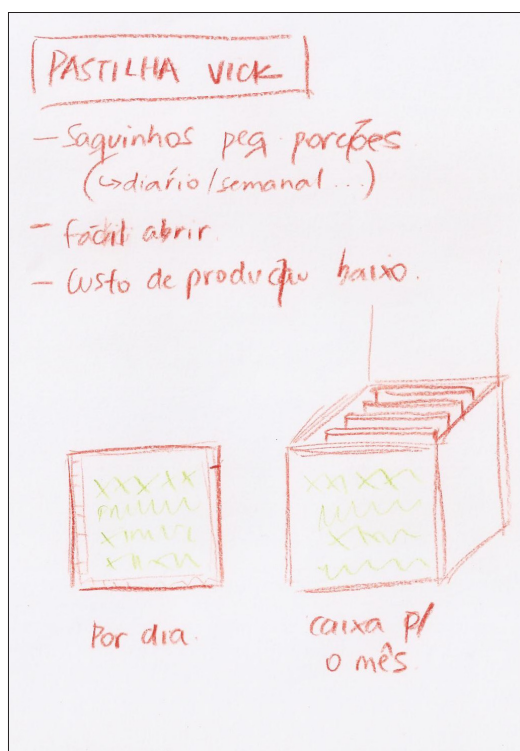 PASTILHA VICK
- Saquinhos peq porções
(↳diário/semanal...)
- fácil abrir
- custo de produção baixo.
Por dia
caixa p/
o mês